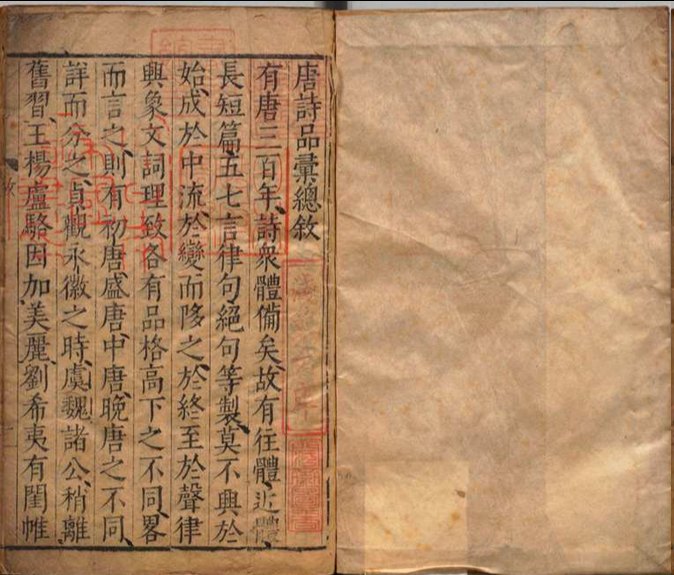 唐詩品彙總敘
有唐三百年、詩衆體備矣、故有往體、近體
長短篇、五七言律句絕句等製、莫不興於
始、成於中、流於變、而陊之、於終、至於聲律
興象、文詞理致、各有品格高下之不同、畧
而言之、則有初唐、盛唐、中唐、晚唐之不同、
詳而分之、貞觀永徽之時、虞魏諸公、稍離
舊習、王楊盧駱、因加美麗、劉希夷有閨帷